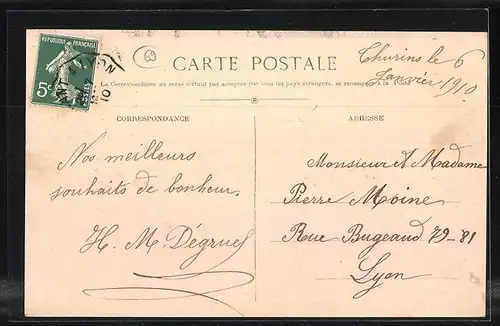 REPUBLIQUE FRANÇAISE
5c
POSTES
LYON
10
69
CARTE POSTALE
Thurins le 6
Janvier 1910
La Correspondance au recto n'étant pas acceptée par tous les pays étrangers, se renseigner à la Poste
CORRESPONDANCE
ADRESSE
Nos meilleurs
souhaits de bonheur.
H. M. Dégruel
Monsieur et Madame
Pierre Moine
Rue Bugeaud 79-81
Lyon